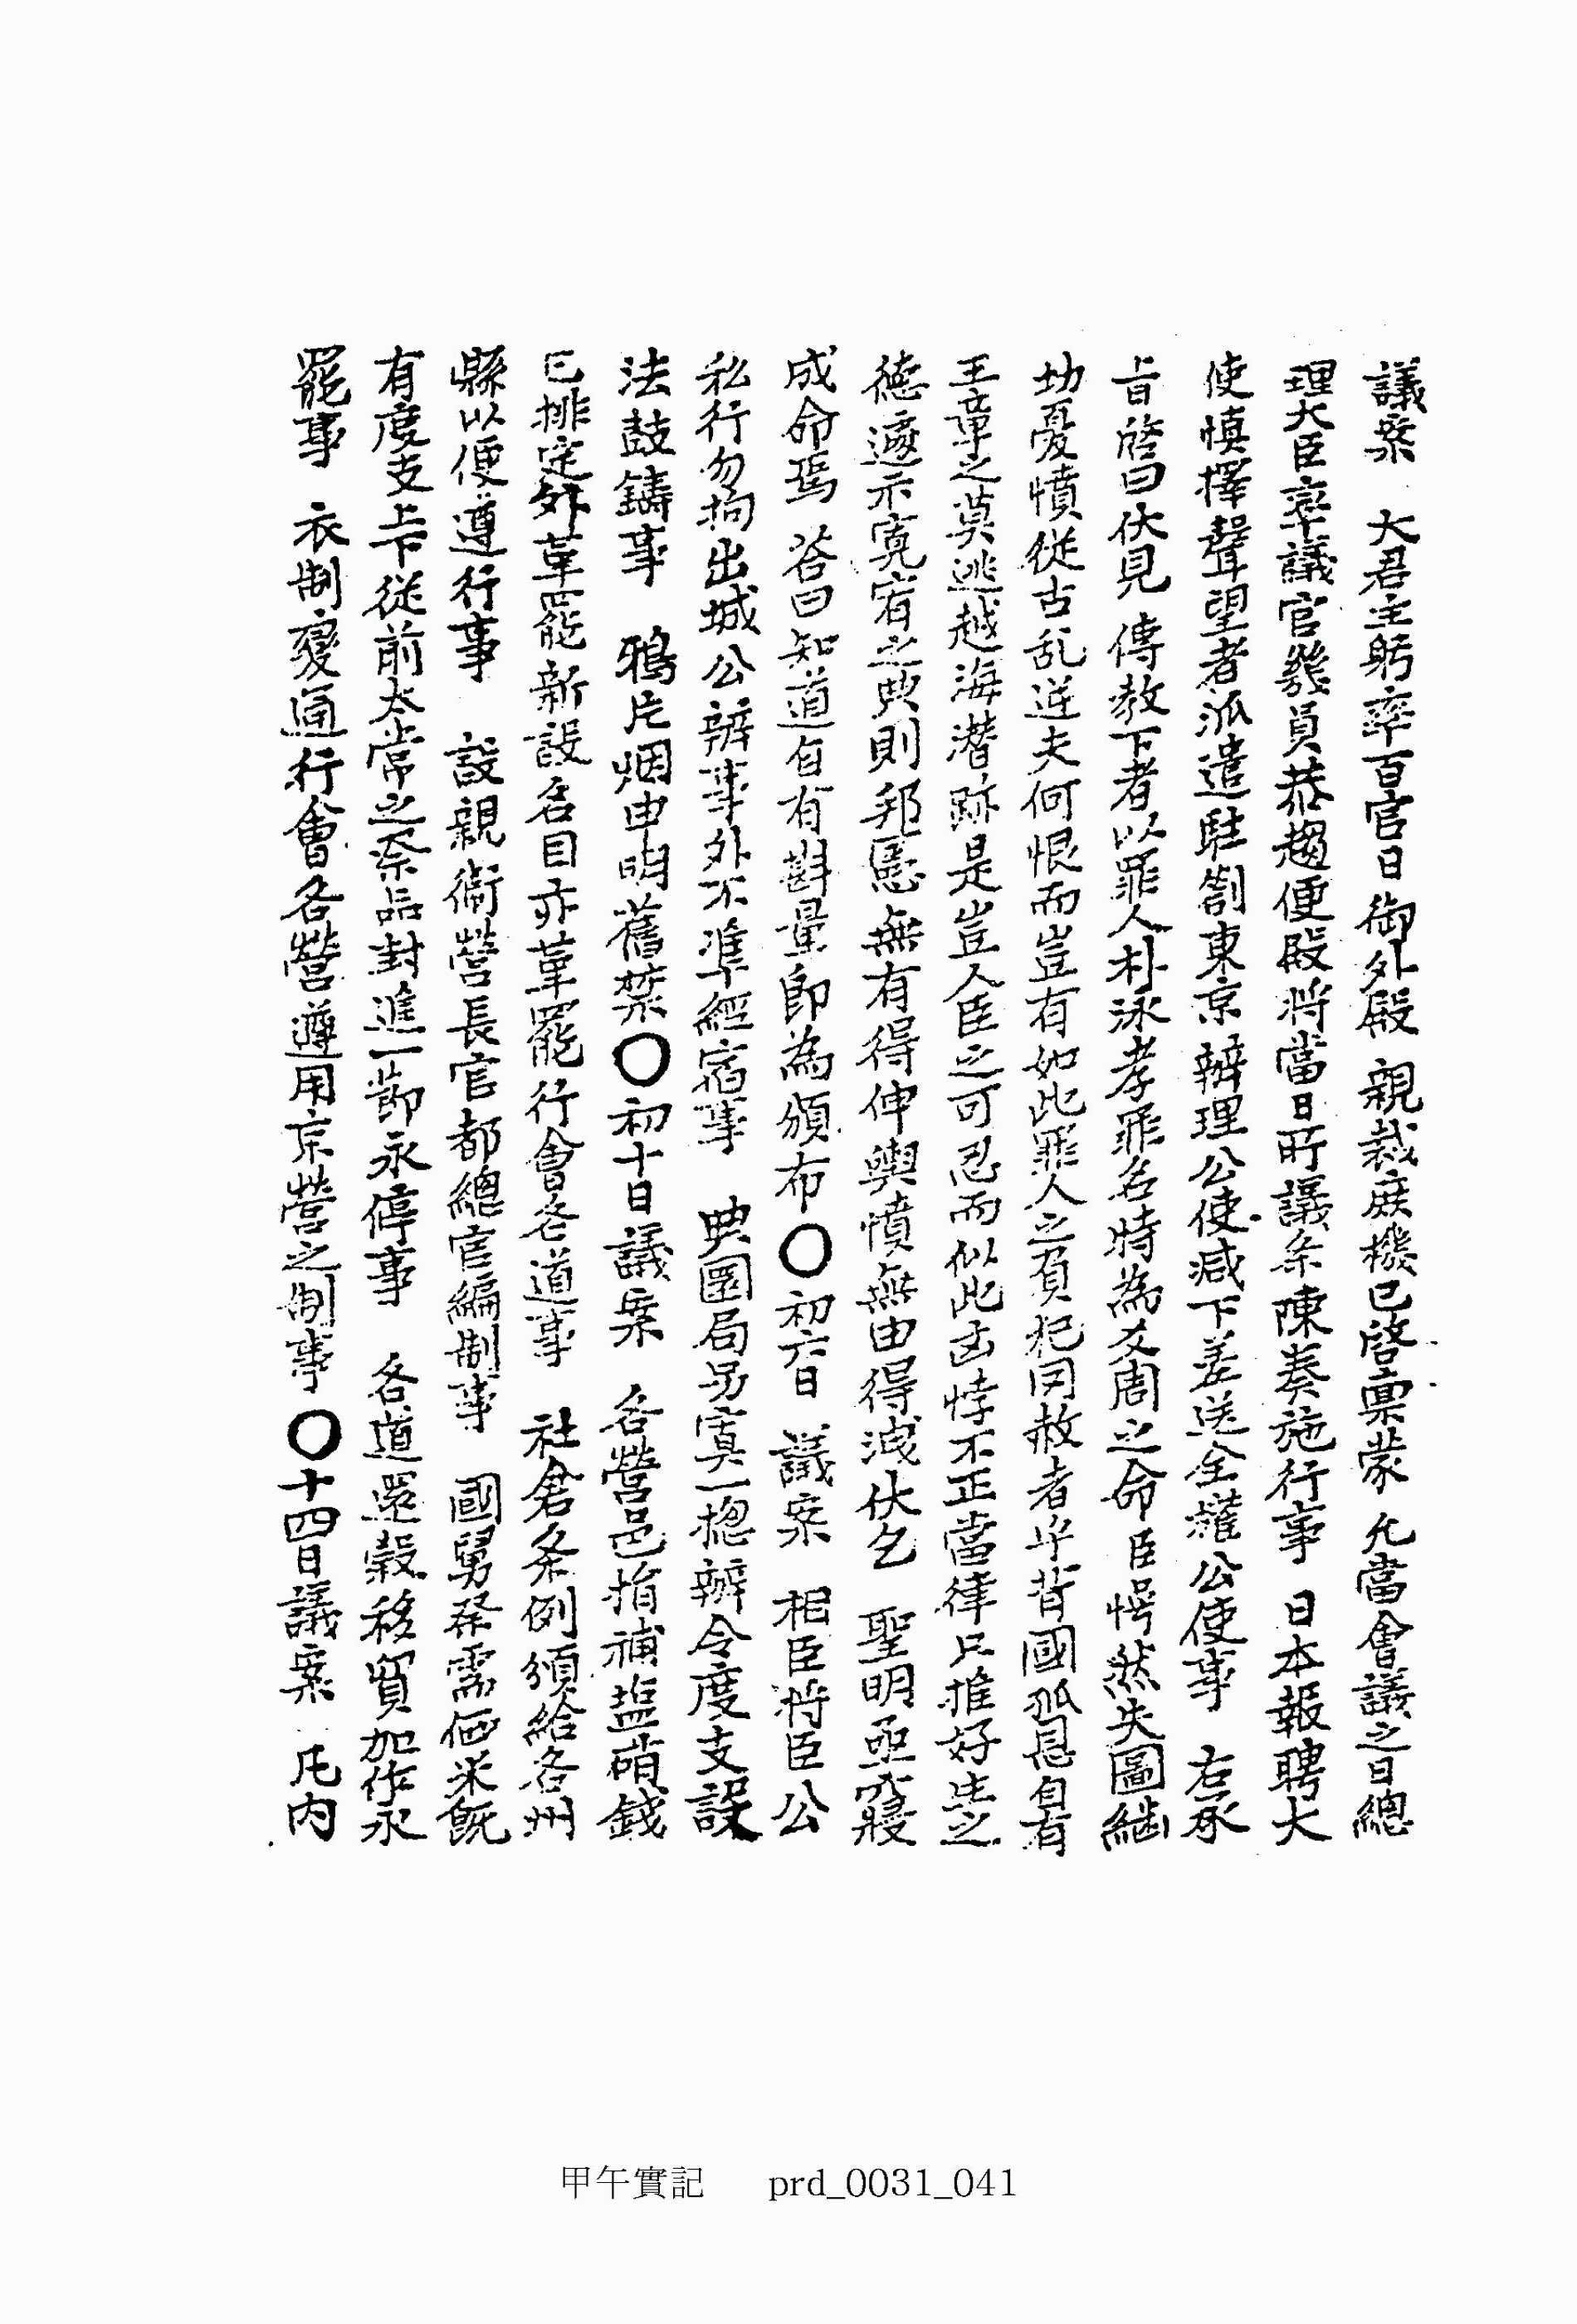 議案 大君主躬率百官日御外殿 親裁庶機已啓禀蒙 允當會議之日總
理大臣率議官幾員恭趨便殿將當日所議条陳奏施行事 日本報聘大
使愼擇聲望者派遣駐劄東京辦理公使減下差送全權公使事 右承
旨啓曰伏見 傳敎下者以罪人朴泳孝罪名時為爻周之命臣愕然失圖繼
切憂憤從古乱逆夫何恨而豈有如此罪人之負犯罔赦者乎背國孤恩自有
王章之莫逃越海潛跡是豈人臣之可忍而似此凶悖不正當律只推好生之
德遽示寬宥之典則邦憲無有得伸輿憤無由得洩伏乞 聖明亟寢
成命焉 答曰知道自有斟量卽為頒布〇初六日 議案 相臣將臣公
私行勿拘出城公辦事外不準經宿事 典圜局另寘一摠辦令度支設
法鼓鑄事 鴉片烟申明舊禁〇初十日議案 各營邑措補塩硝錢
已排定外革罷新設名目亦革罷行會各道事 社倉条例頒給各州
縣以便遵行事 設親衛營長官都總官編制事 國舅祭需価米旣
有度支上下從前太常之祭品封進一節永停事 各道還穀移貿加作永
罷事 衣制變通行會各營遵用京營之制事〇十四日議案 凡內
甲午實記 prd_0031_041